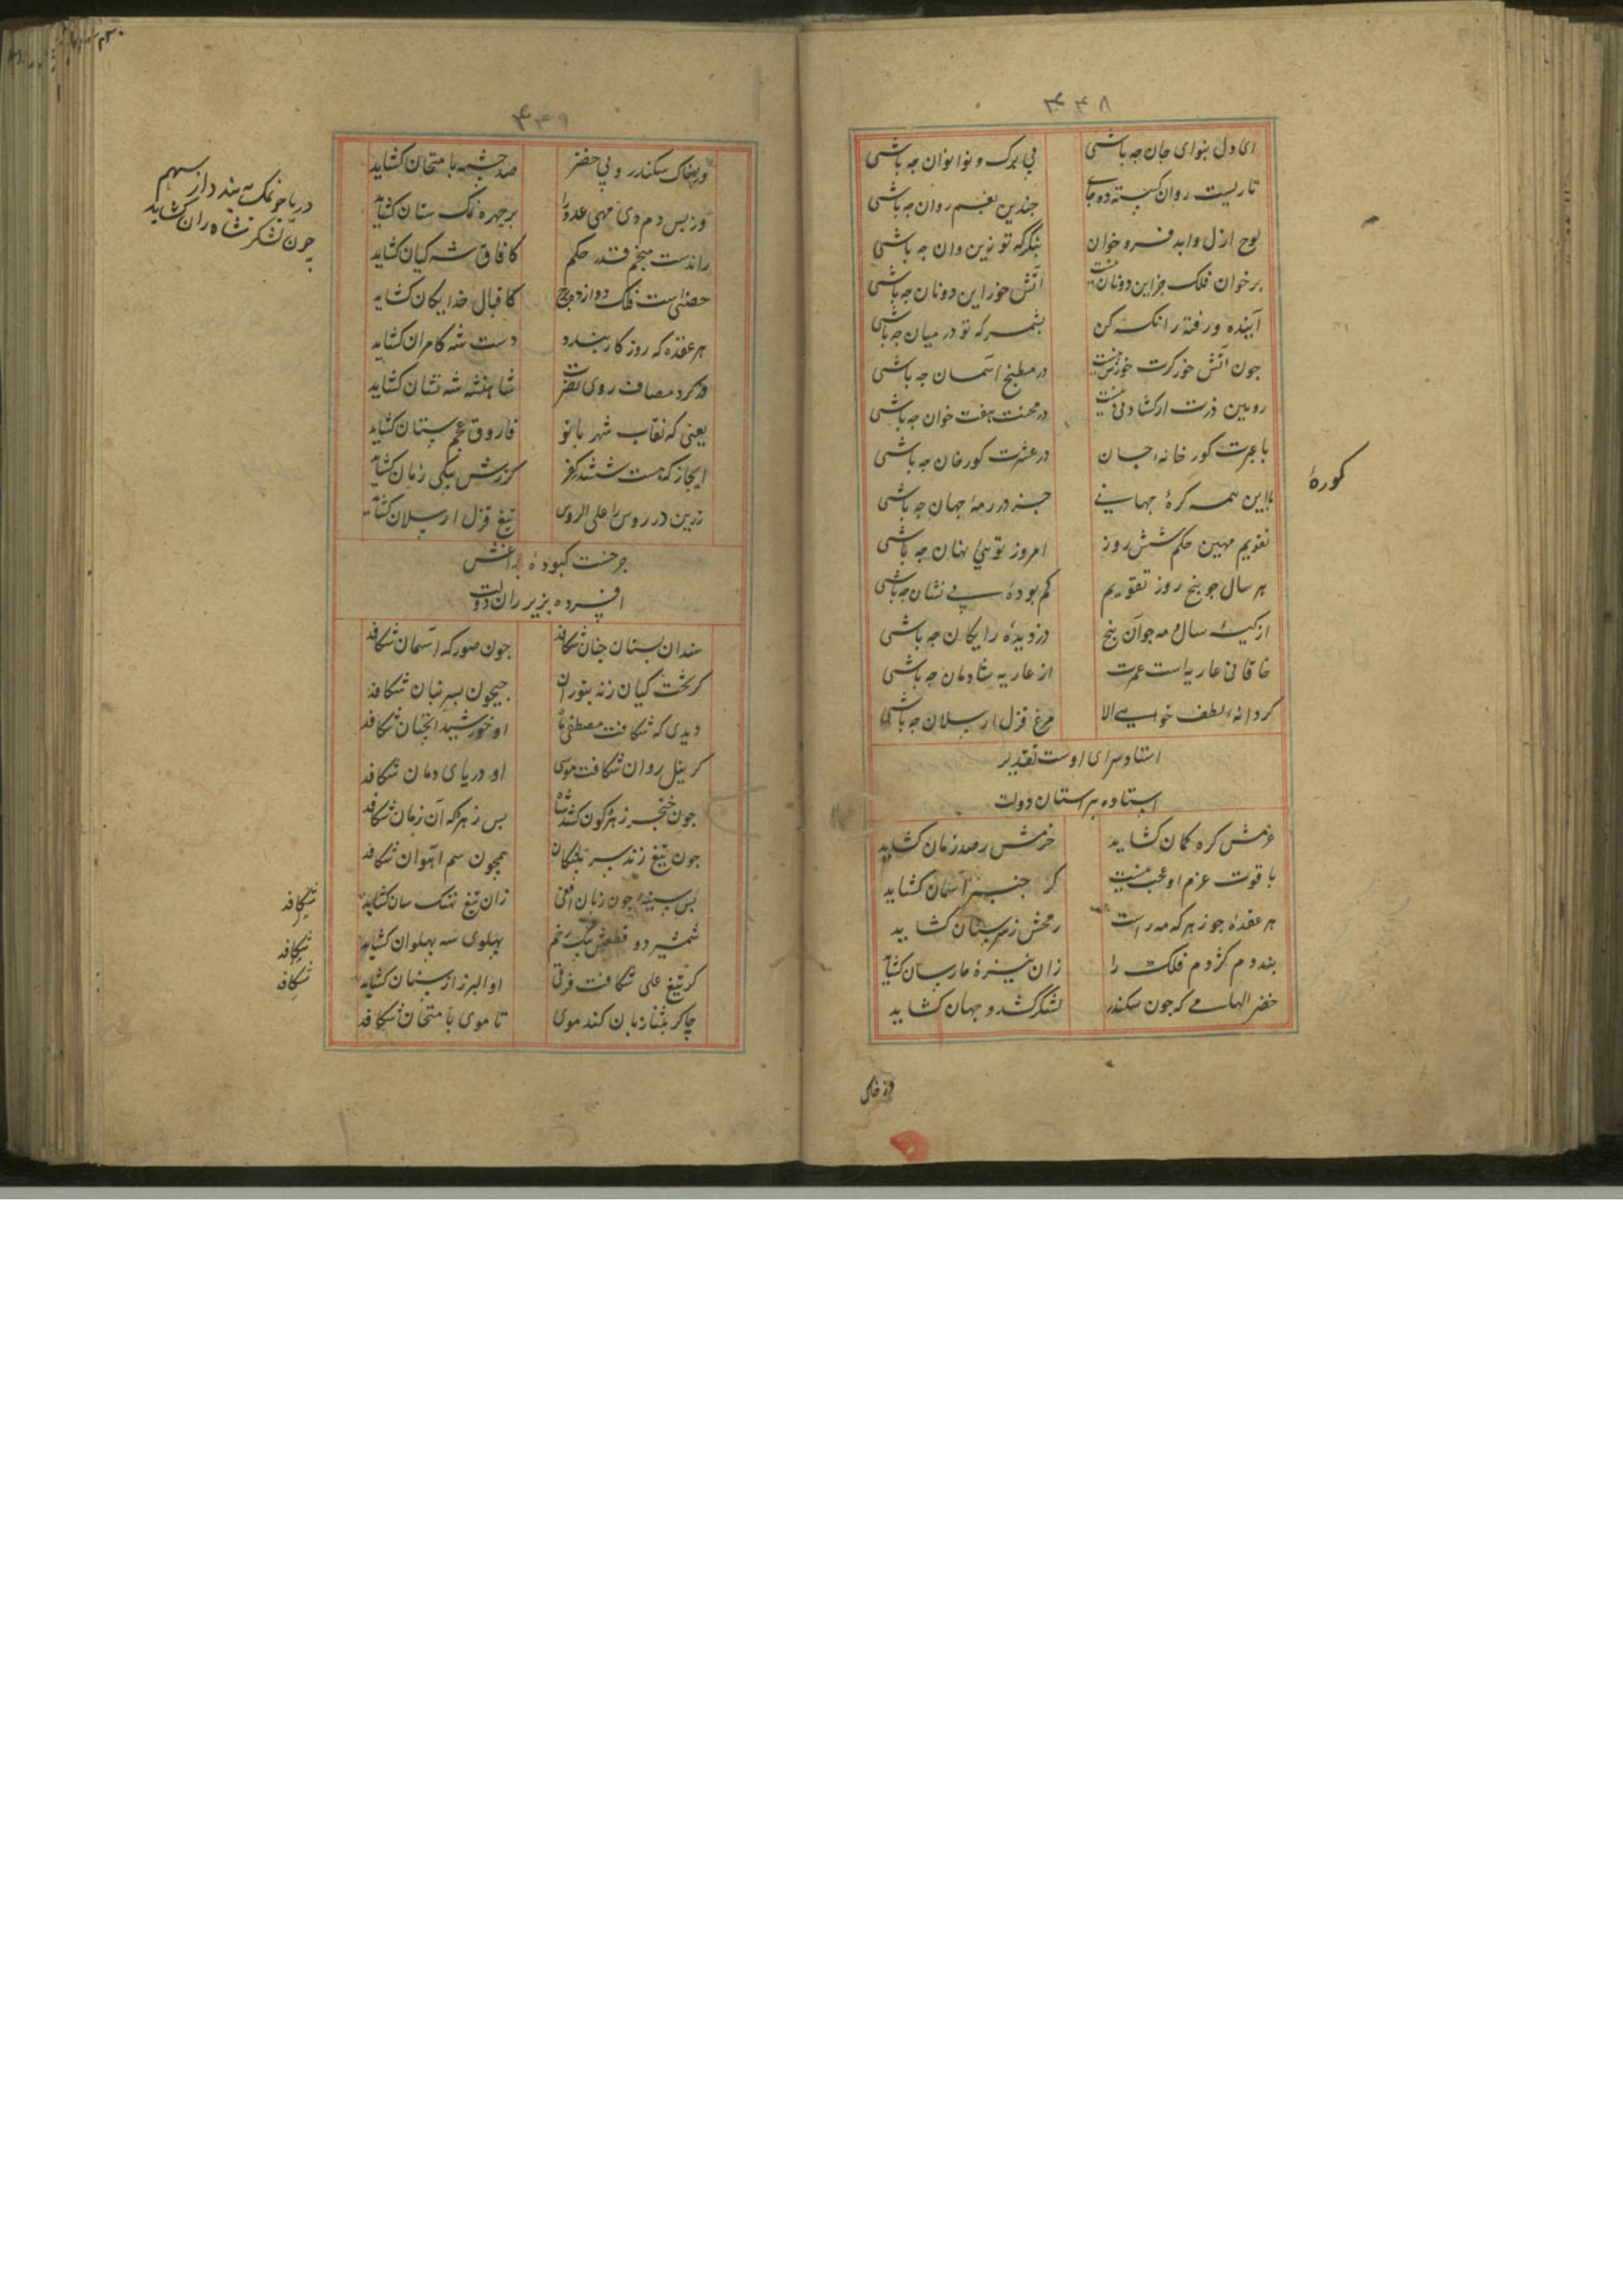 ۴۳۸
ای دل بنوای جان چه باشی بی برک و نوا نوان چه باشی
تاریست روان کسسته ده جای جندین بغم روان جه باشی
لوح ازل و ابد فرو خوان بنکر که تو زین و ان جه باشی
بر خوان فلک جز این دو نان نیست آتش خور این دو نان جه باشی
آینده و رفته را نکه کن بشمر که تو در میان جه باشی
جون آتش خور کرت خورش نیست در مطبخ آسمان جه باشی
رویین دزت ار کشادنی نیست در محنت هفت خوان جه باشی
با عبرت کور خانه جان در عشرت کورخان جه باشی
با این همه کرهٔ جهانی جز در رمهٔ جهان جه باشی
تقویم مهین حکم شش روز امروز تویی نهان جه باشی
هر سال جو بنج روز تقویم کم بودهٔ بی نشان جه باشی
از کیسهٔ سال و مه جو آن بنج دزدیدهٔ رایکان جه باشی
خاقانی عاریه است عمرت از عاریه شادمان جه باشی
کر دانهٔ لطف خواهی الا مرغ قزل ارسلان جه باشی
استاد سرای اوست تقدیر
استاده بر استان دولت
عزمش کره کمان کشاید حزمش رصد زمان کشاید
با قوت عزم او عجب نیست کر جنبر آسمان کشاید
هر عقدهٔ جوزهر که مه راست رمحش ز سر سنان کشاید
بند دم کژدم فلک را زان نیزهٔ مارسان کشاید
خضر الهامی که جون سکندر لشکر کشد و جهان کشاید
کورهٔ
ور خاک
۴۳۹
ور خاک سکندر و بی خضر صد جشمه بامتحان کشاید
وز بس دم دی مهی عدو را بر جهره نمک ستان کشاید
راندست منجم قدر حکم کافاق شه کیان کشاید
حصنی است فلک دوازده برج کاقبال خدایکان کشاید
هر عقده که روزکار بندد دست شه کامران کشاید
قد کرد مصاف روی نصرت شاهنشه شه نشان کشاید
یعنی که نقاب شهربانو فاروق عجم ستان کشاید
ایجاز که هست ششدر کفر کرزش بیکی زمان کشاید
زرین در روس را علی الروس تیغ قزل ارسلان کشاید
جرخست کبودهٔ بداغش
افسرده بزیر ران دولت
سندان بسنان جنان شکافد جون صور که آسمان شکافد
کر خشت کیان زند بنوران جیجون بسر بنان شکافد
دیدی که شکافت مصطفی ماه او خورشید انجنان شکافد
کر نیل روان شکافت موسی او دریای دمان شکافد
جون خنجر زهرکون کشد شاه بس زهره که آن زمان شکافد
جون تیغ زند بسر بلنکان همجون سم آهوان شکافد
بس سینه جون زبان افعی زان تیغ نهنک سان کشاید
شمشیر دو قطعش بیک زخم بهلوی سه بهلوان کشاید
کر تیغ علی شکافت فرقی او البرز از سنان کشاید
جاکر بثنا زبان کند موی تا موی بامتحان شکافد
دریا جو نمک ببندد از سهم
چون لشکر شاه ران کشاید
شکافد
شکافد
شکافد